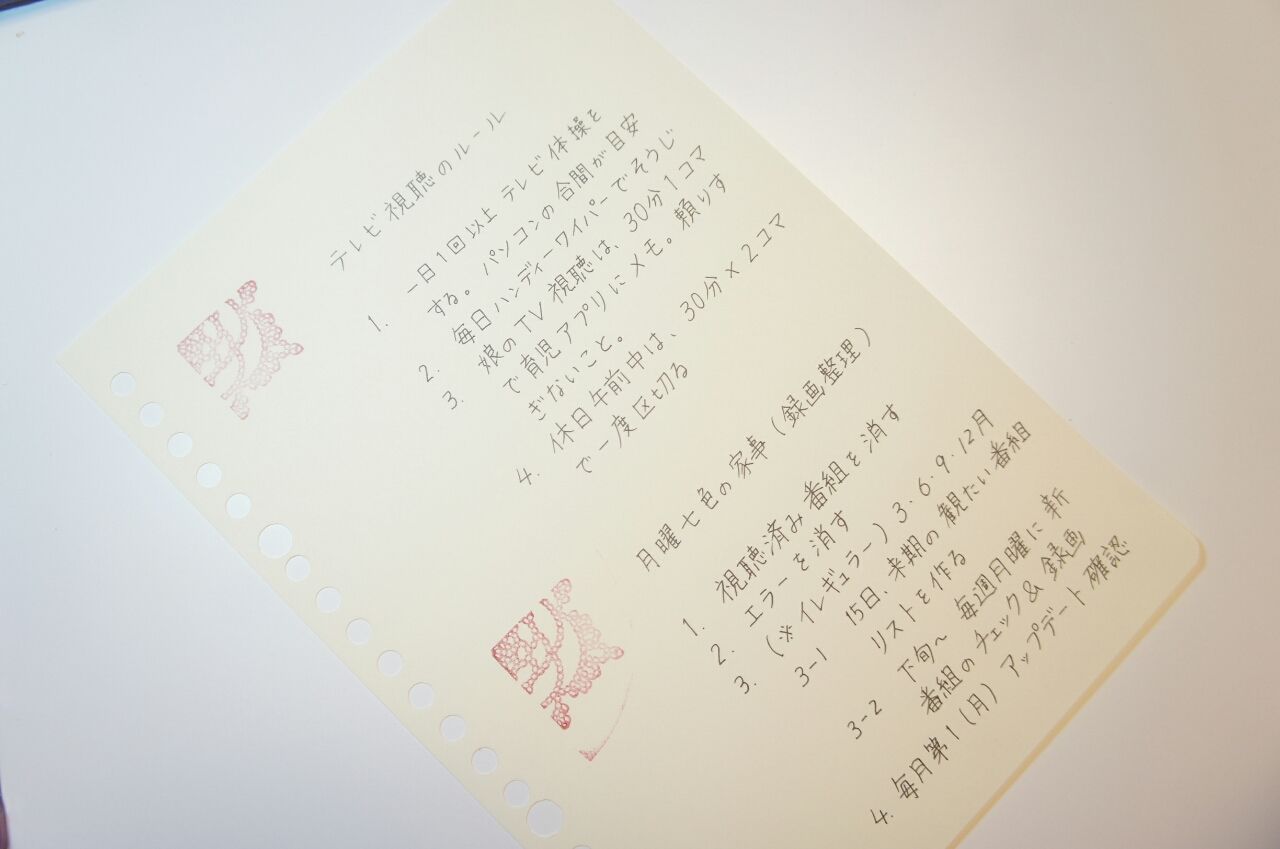 テレビ視聴のルール
1. 一日1回以上 テレビ体操を
する。 パソコンの合間が目安
2. 毎日ハンディーワイパーでそうじ
3. 娘のTV視聴は、30分1コマ
で育児アプリにメモ。頼りす
ぎないこと。
4. 休日午前中は、30分×2コマ
で一度区切る
月曜七色の家事(録画整理)
1. 視聴済み番組を消す
2. エラーを消す
3. (※イレギュラー) 3・6・9・12月
3-1 15日、来期の観たい番組
リストを作る
3-2 下旬~ 毎週月曜に新
番組のチェック&録画
4. 毎月第1(月) アップデート確認